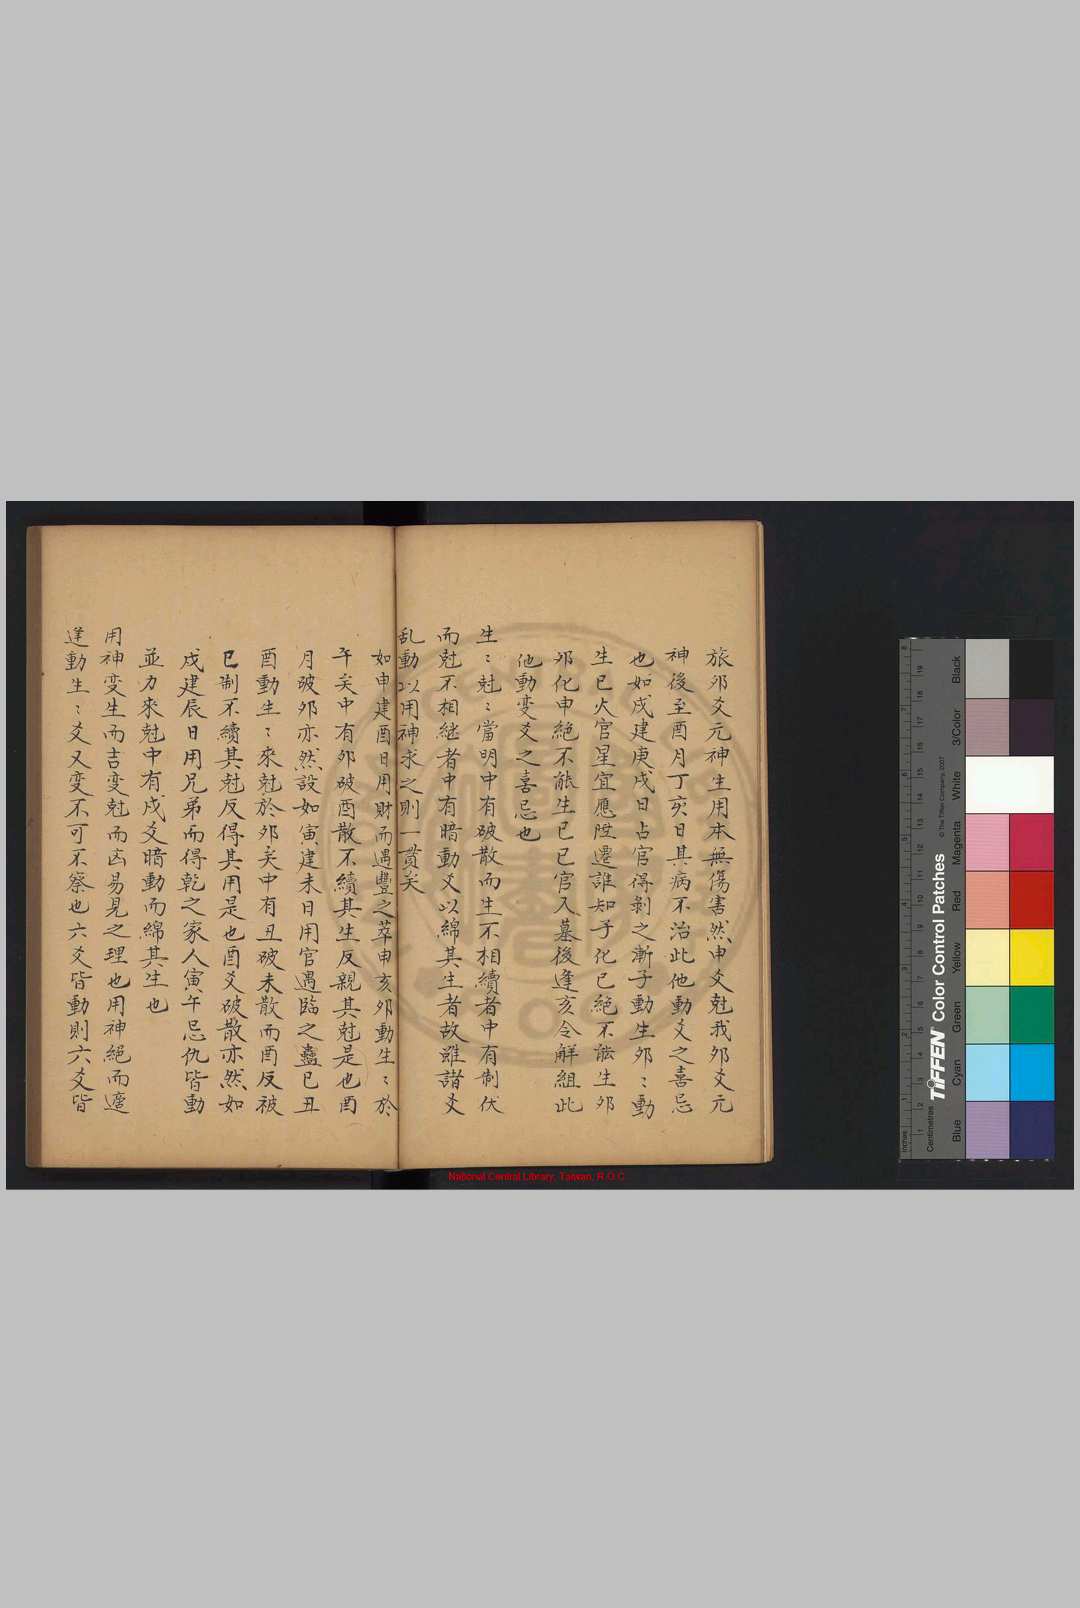 旅夘爻元神生用本無傷害然申爻尅我夘爻元
神後至酉月丁亥日其病不治此他動爻之喜忌
也如戌建庚戌日占官得剝之漸子動生夘〻動
生巳火官星宜應陞遷誰知子化巳絕不能生夘
夘化申絕不能生巳巳官入墓後逢亥令解組此
他動變爻之喜忌也
生〻尅〻當明中有破散而生不相續者中有制伏
而尅不相継者中有暗動爻以綿其生者故雖諸爻
乱動以用神求之則一貫矣
如申建酉日用財而遇豐之萃申亥夘動生〻於
午矣中有夘破酉散不續其生反親其尅是也酉
月破夘亦然設如寅建未日用官遇臨之蠱巳丑
酉動生〻來尅於夘矣中有丑破未散而酉反被
巳制不續其尅反得其用是也酉爻破散亦然如
戌建辰日用兄弟而得乾之家人寅午忌仇皆動
並力來尅中有戌爻暗動而綿其生也
用神变生而吉变尅而凶易見之理也用神絕而遇
逢動生〻爻又变不可不察也六爻皆動則六爻皆
National Central Library, Taiwan, R.O.C
Inches
Centimetres
TIFFEN Color Control Patches
© The Tiffen Company, 2007
Blue
Cyan
Green
Yellow
Red
Magenta
White
3/Color
Black